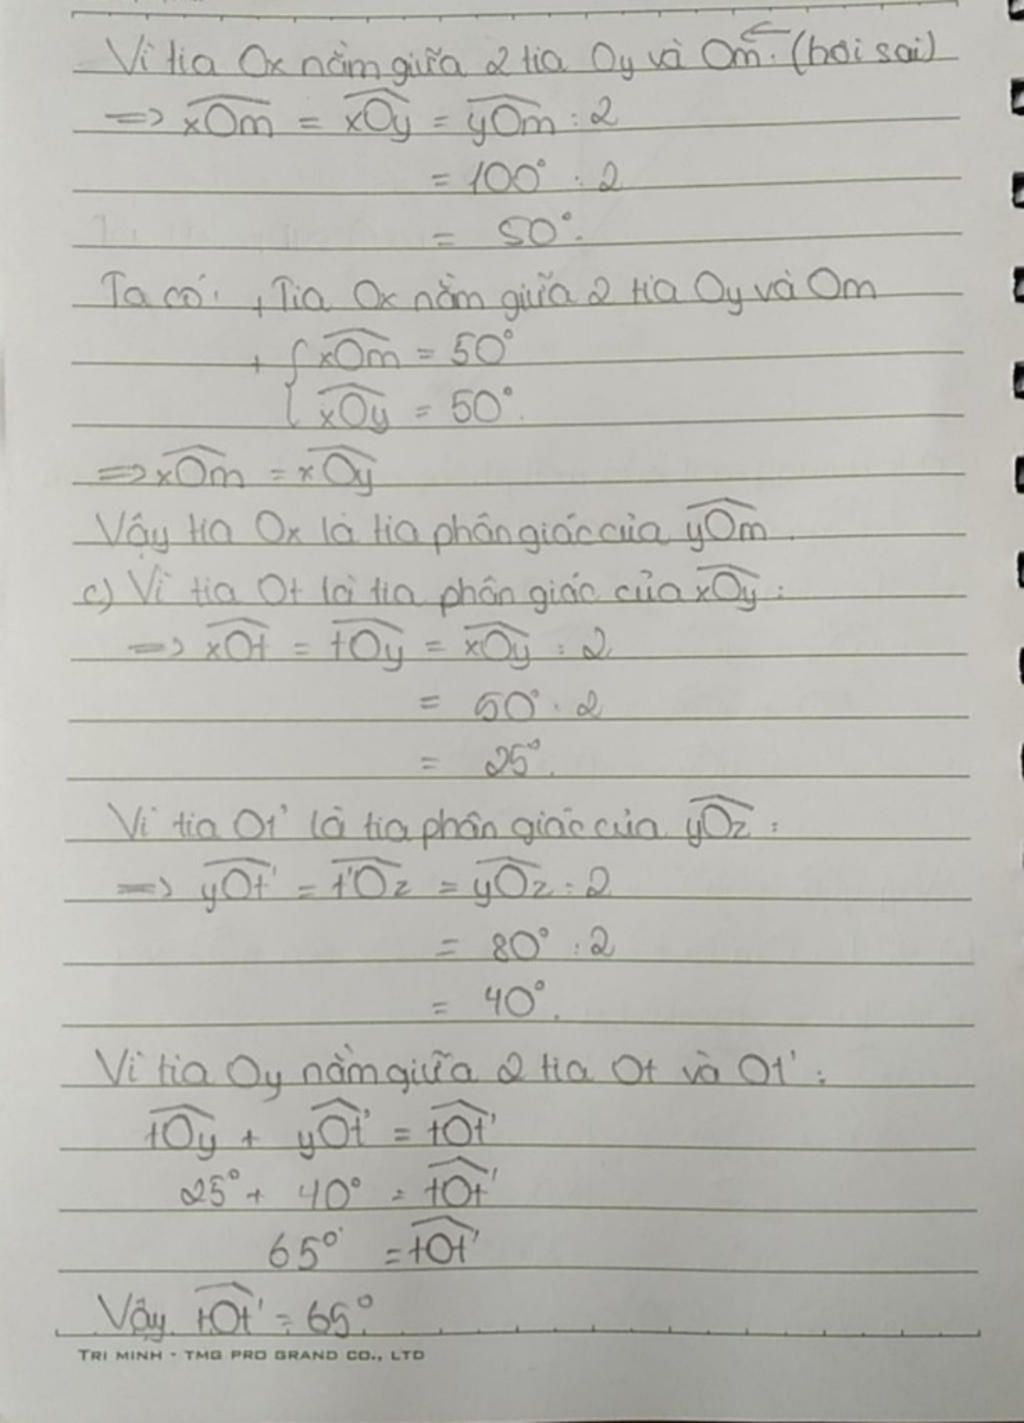 Vì tia Ox nằm giữa 2 tia Oy và Om. (hơi sai)
=> xOm = xOy = yOm : 2
= 100° : 2
= 50°.
Ta có: + Tia Ox nằm giữa 2 tia Oy và Om
+ { xOm = 50°
xOy = 50°.
=> xOm = xOy
Vậy tia Ox là tia phân giác của yOm.
c) Vì tia Ot là tia phân giác của xOy :
=> xOt = tOy = xOy : 2
= 50° : 2
= 25°.
Vì tia Ot' là tia phân giác của yOz :
=> yOt' = t'Oz = yOz : 2
= 80° : 2
= 40°.
Vì tia Oy nằm giữa 2 tia Ot và Ot' :
tOy + yOt' = tOt'
25° + 40° = tOt'
65° = tOt'
Vậy tOt' = 65°
TRI MINH - TMG PRO GRAND CO., LTD